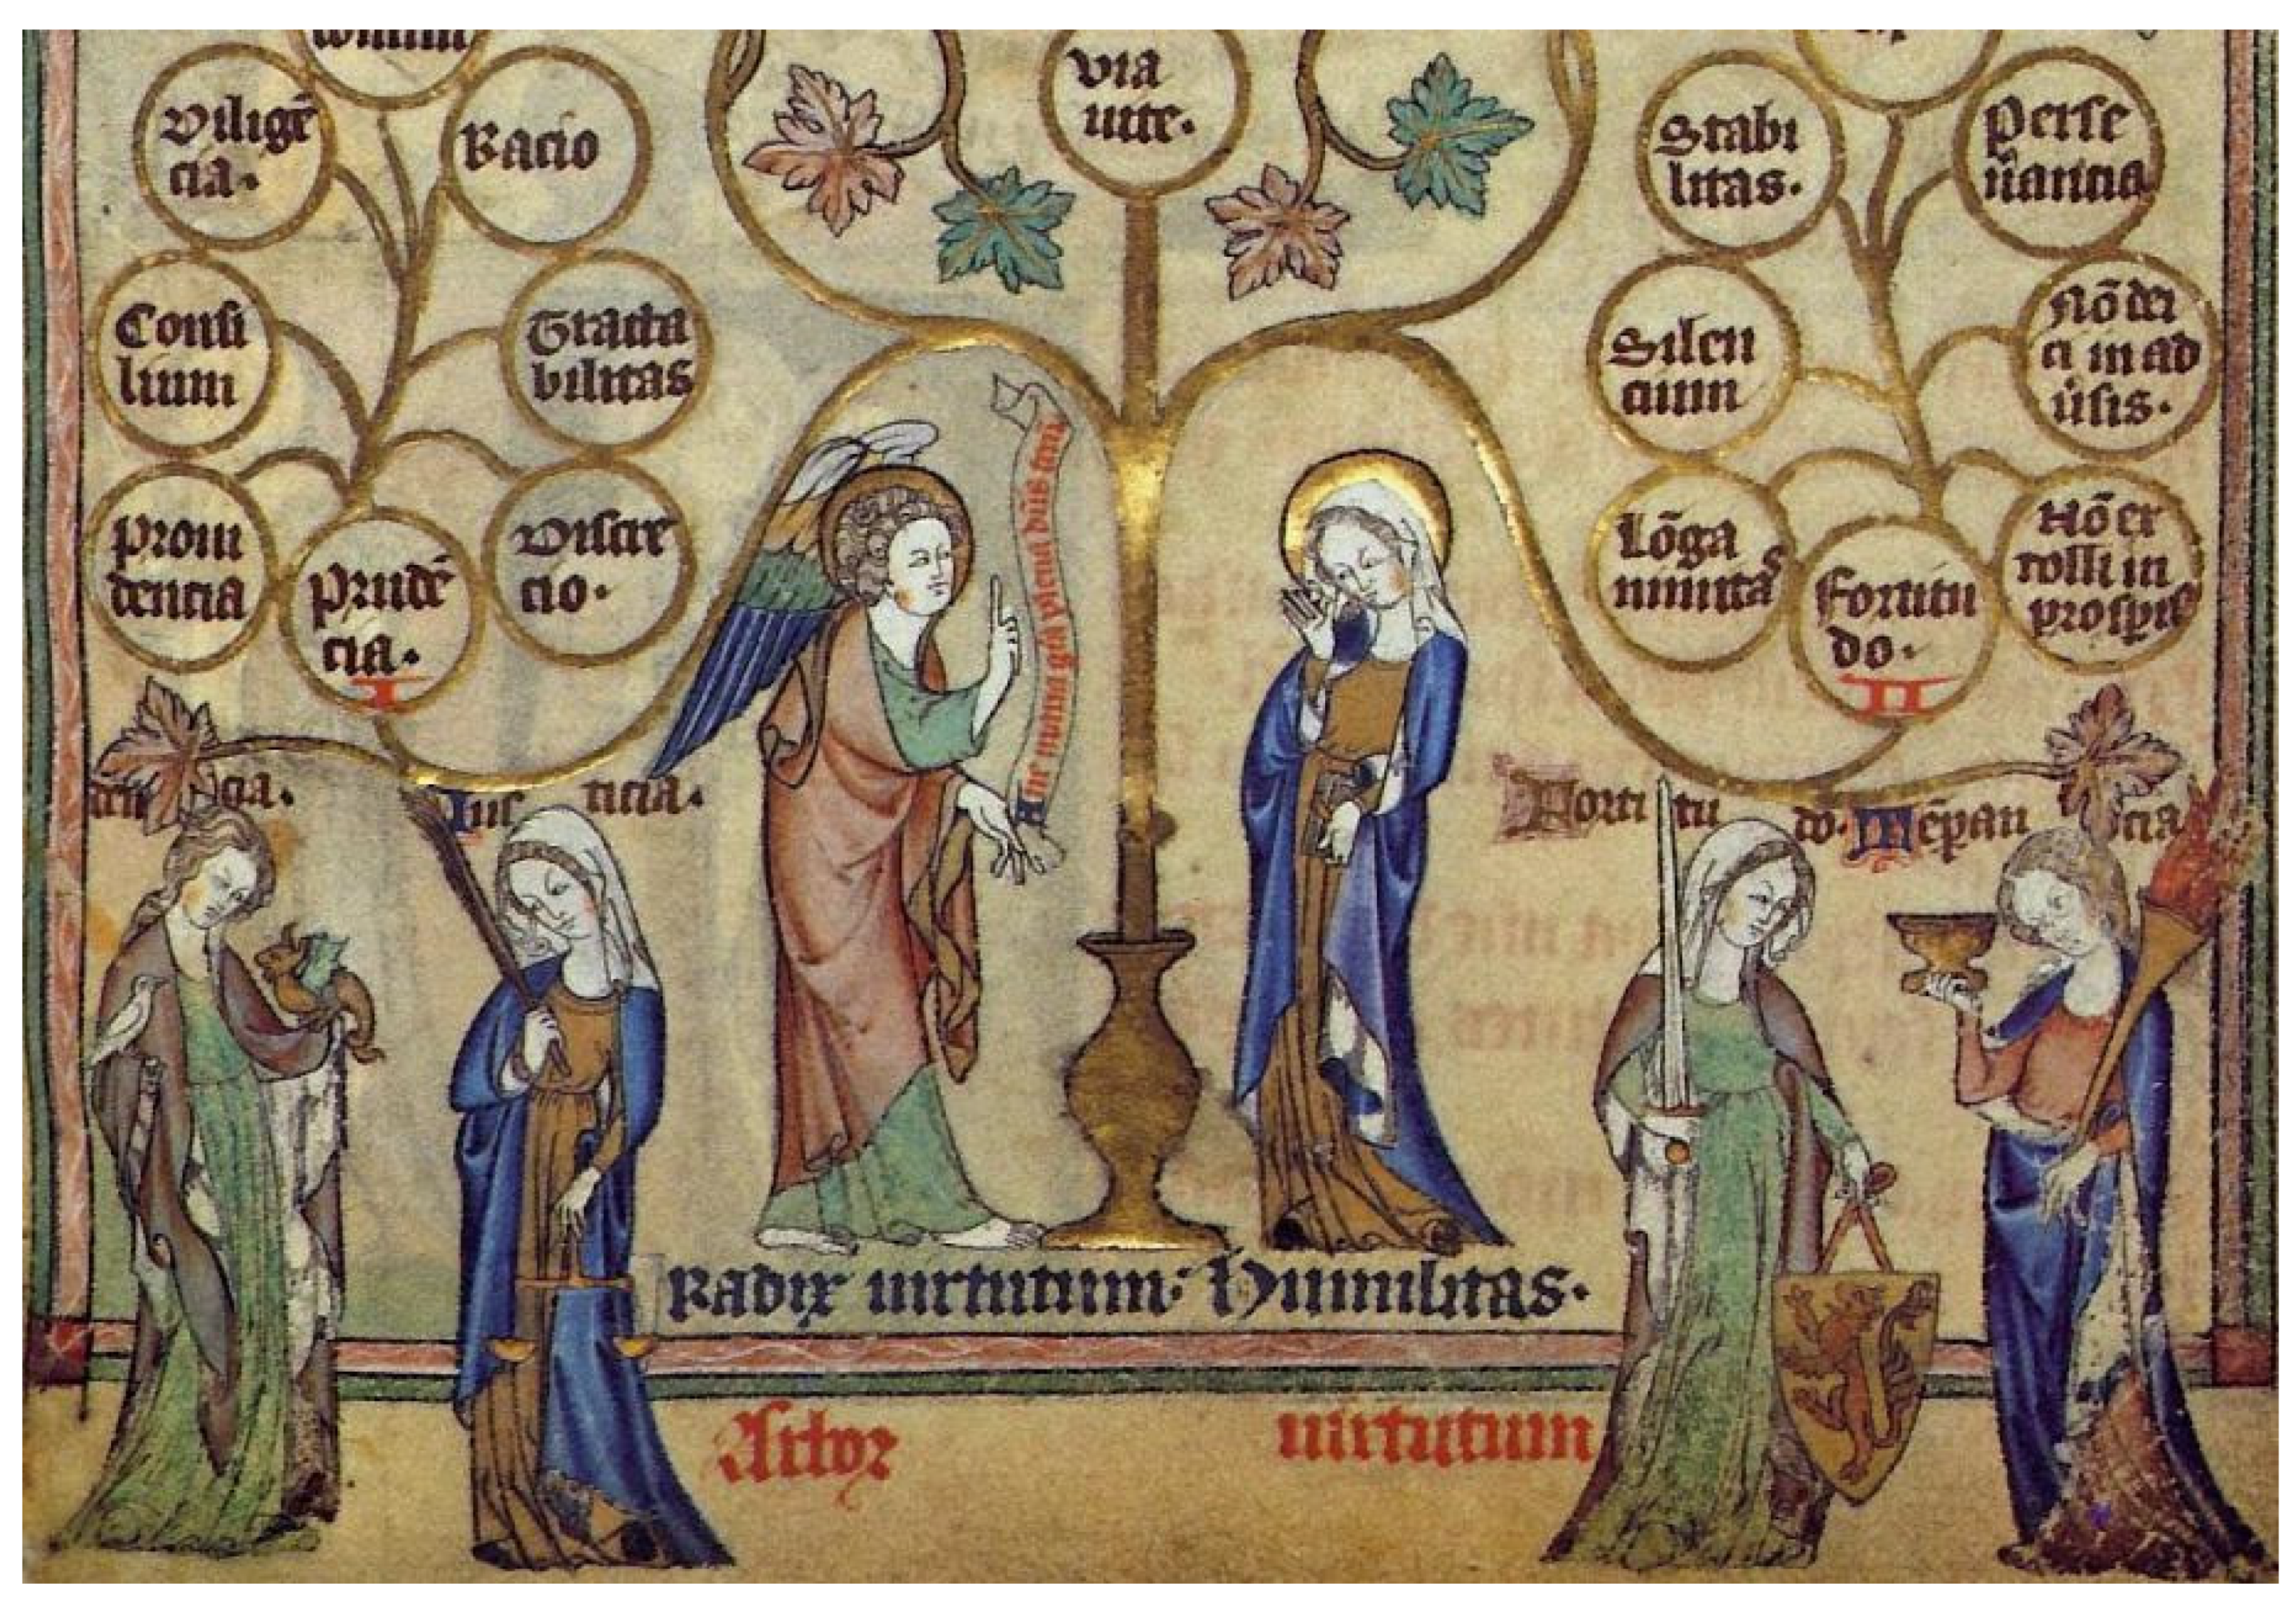 via
uite.
Diligē
cia.
Racio
Consi
lium
Tracta
bilitas
Proui
dencia
Prudē
cia.
I
Discre
cio.
Stabi
litas.
Perse
uancia
Silen
cium
Nō dei
ci in ad
uſis.
Lōga
nimitas
Fortitu
do.
II
Nō ex
tolli in
prosperis
Aue maria gīa plena dn̄s tecū
cia.
Ius ticia.
Forti tu do. Tēperan cia
Radix uirtutum. Humilitas.
Arbor uirtutum